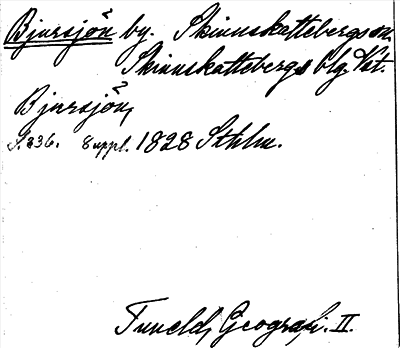 Bjursjön by. Skinnskattebergs sn.
Skinnskattebergs blg. Vst.
Bjursjön,
S. 336. 8 uppl. 1828 Sthlm.
Tuneld, Geografi. II.